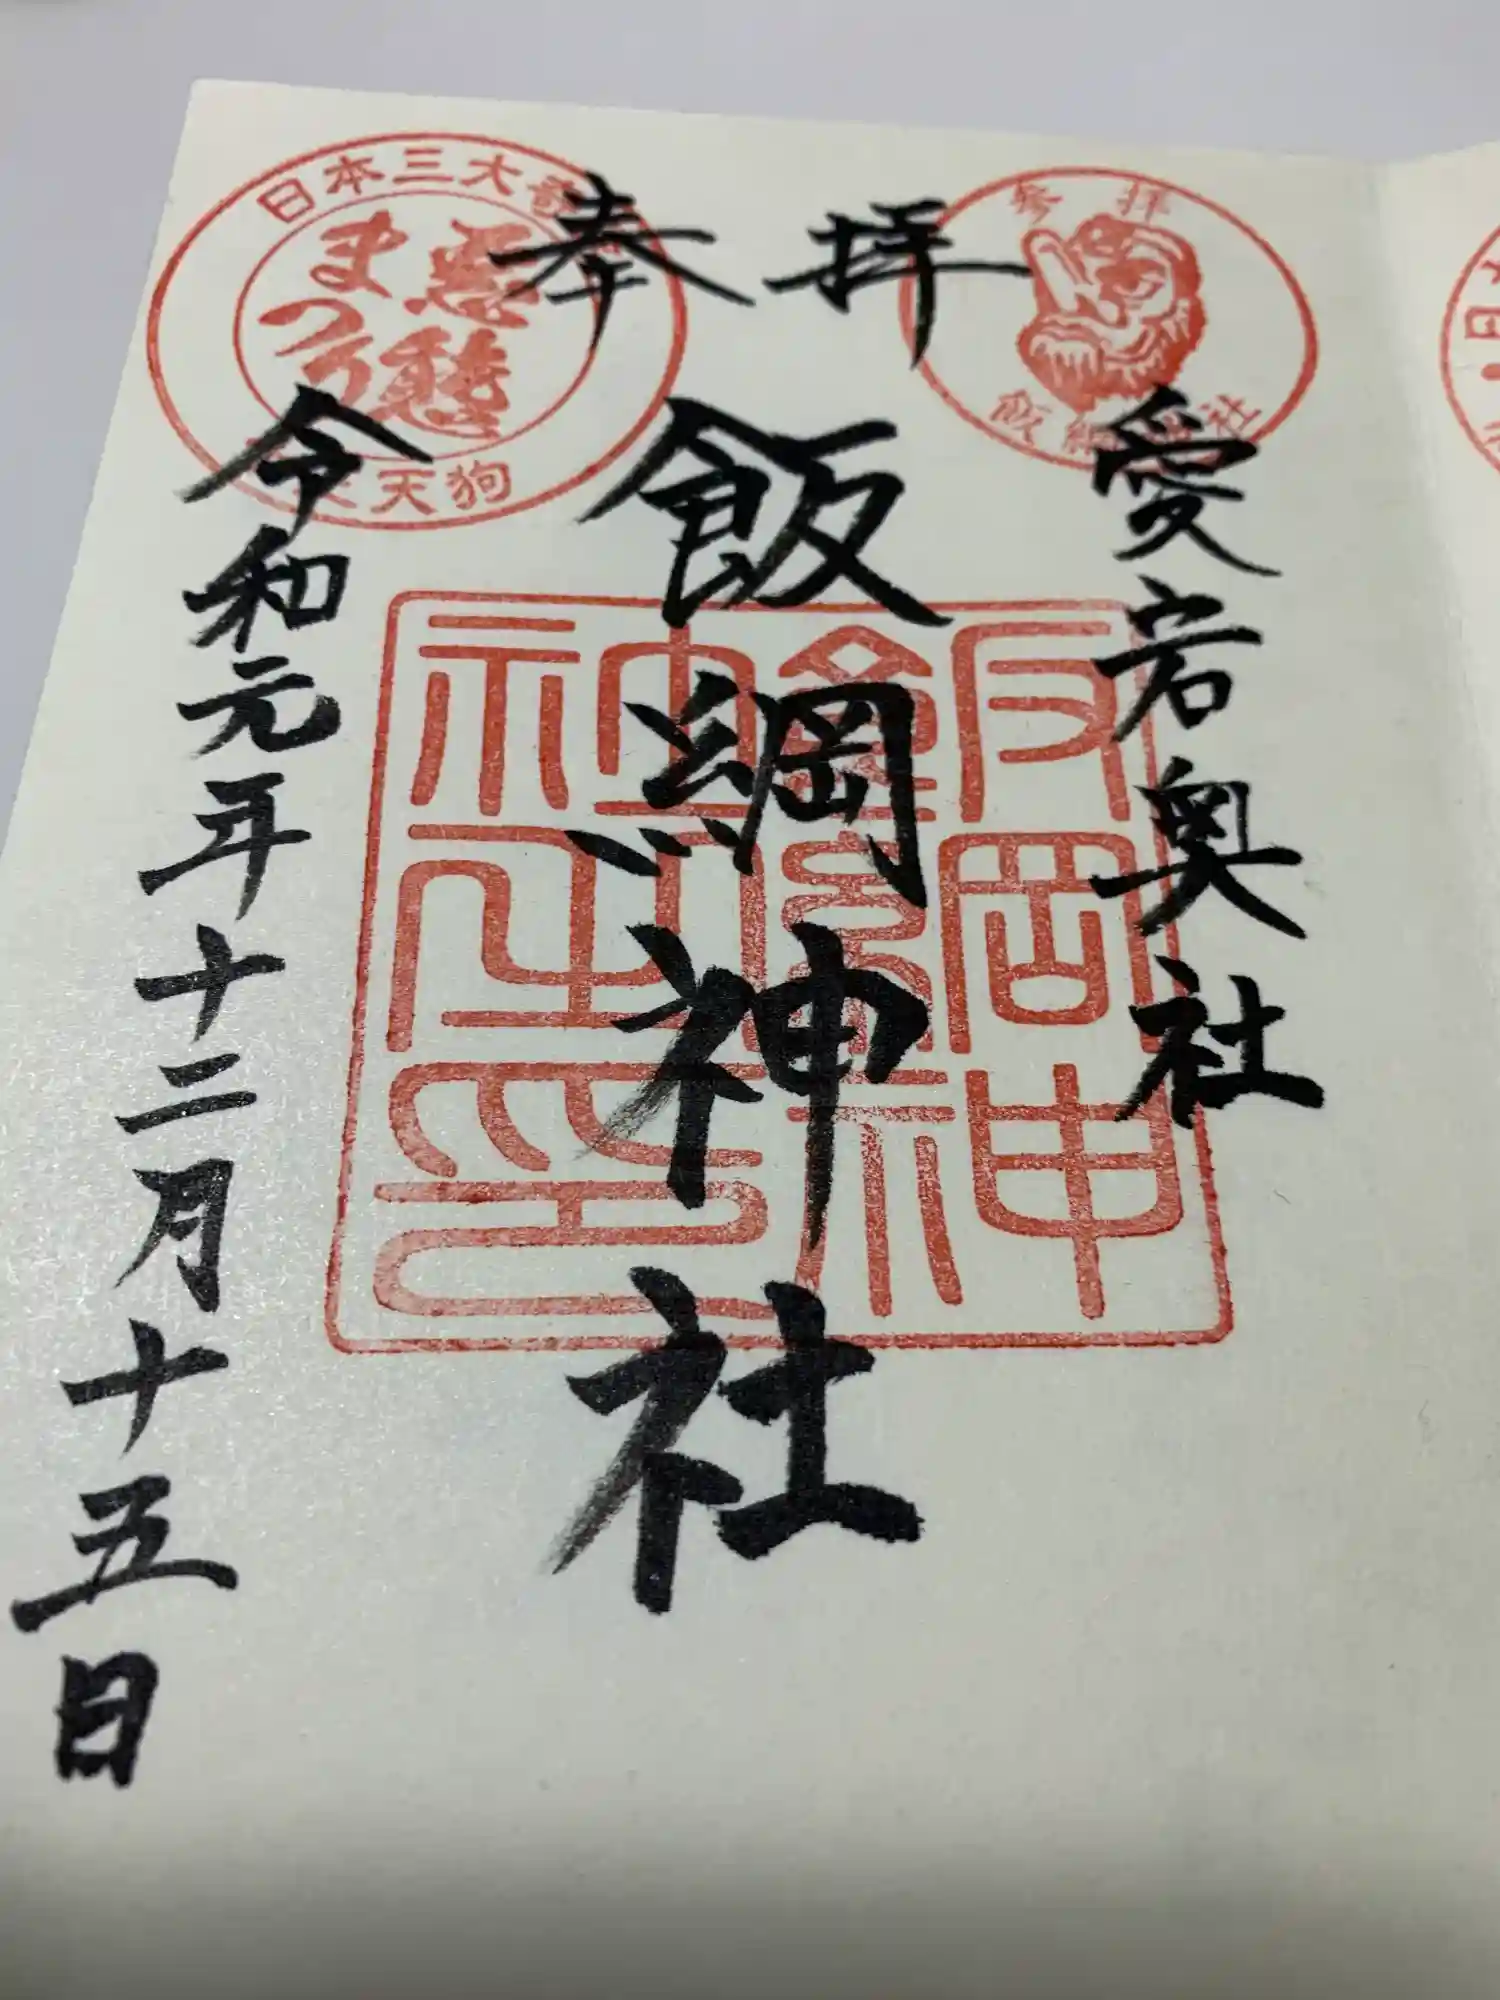 奉拝
愛宕奥社
飯綱神社
令和元年十二月十五日
日本三大
悪態
まつり
天狗
参拝
飯綱神社
飯綱神
社之印